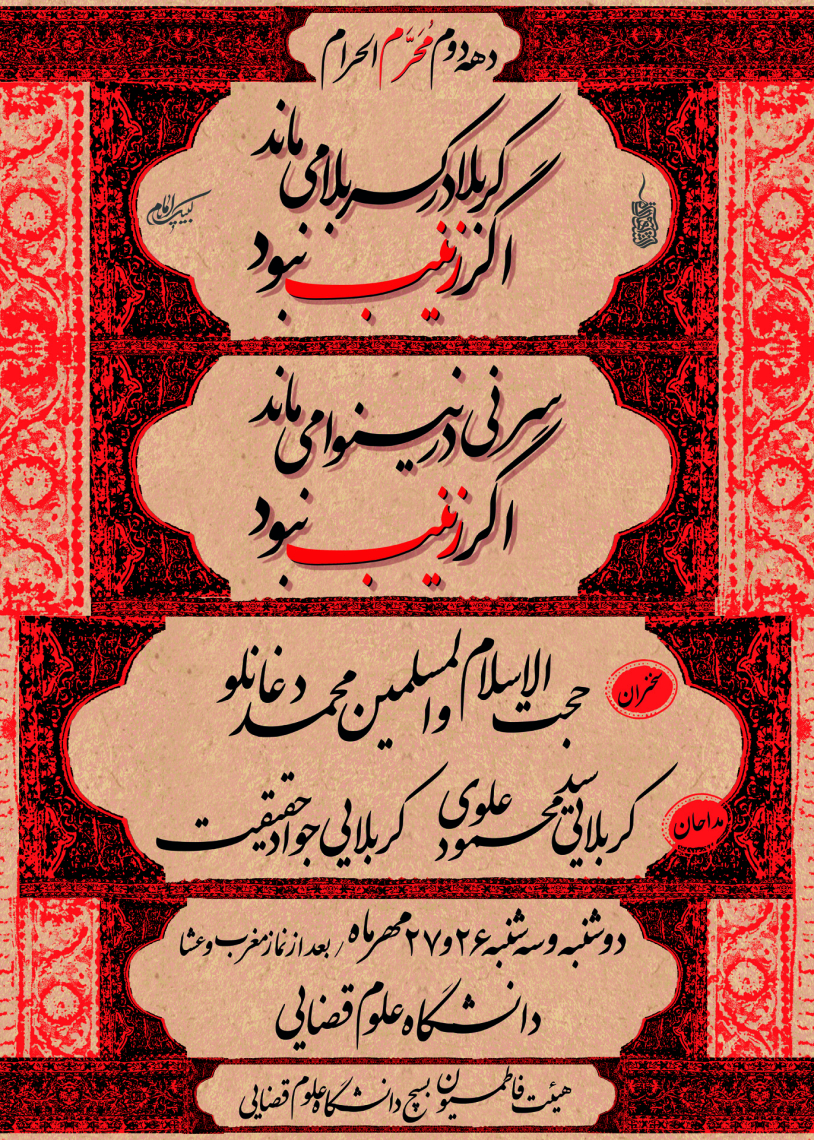 دهه دوم مُحَرَّم الحرام
کربلا در کربلا می ماند
اگر زینب نبود
لبیک یا امام
سر نی در نینوا می ماند
اگر زینب نبود
سخنران
حجت الاسلام والمسلمین محمد دغانلو
مداحان
کربلایی سید محمود علوی کربلایی جواد حقیقیت
دوشنبه و سه شنبه ۲۶ و ۲۷ مهر ماه / بعد از نماز مغرب و عشا
دانشگاه علوم قضایی
هیئت فاطمیون بسیج دانشگاه علوم قضایی